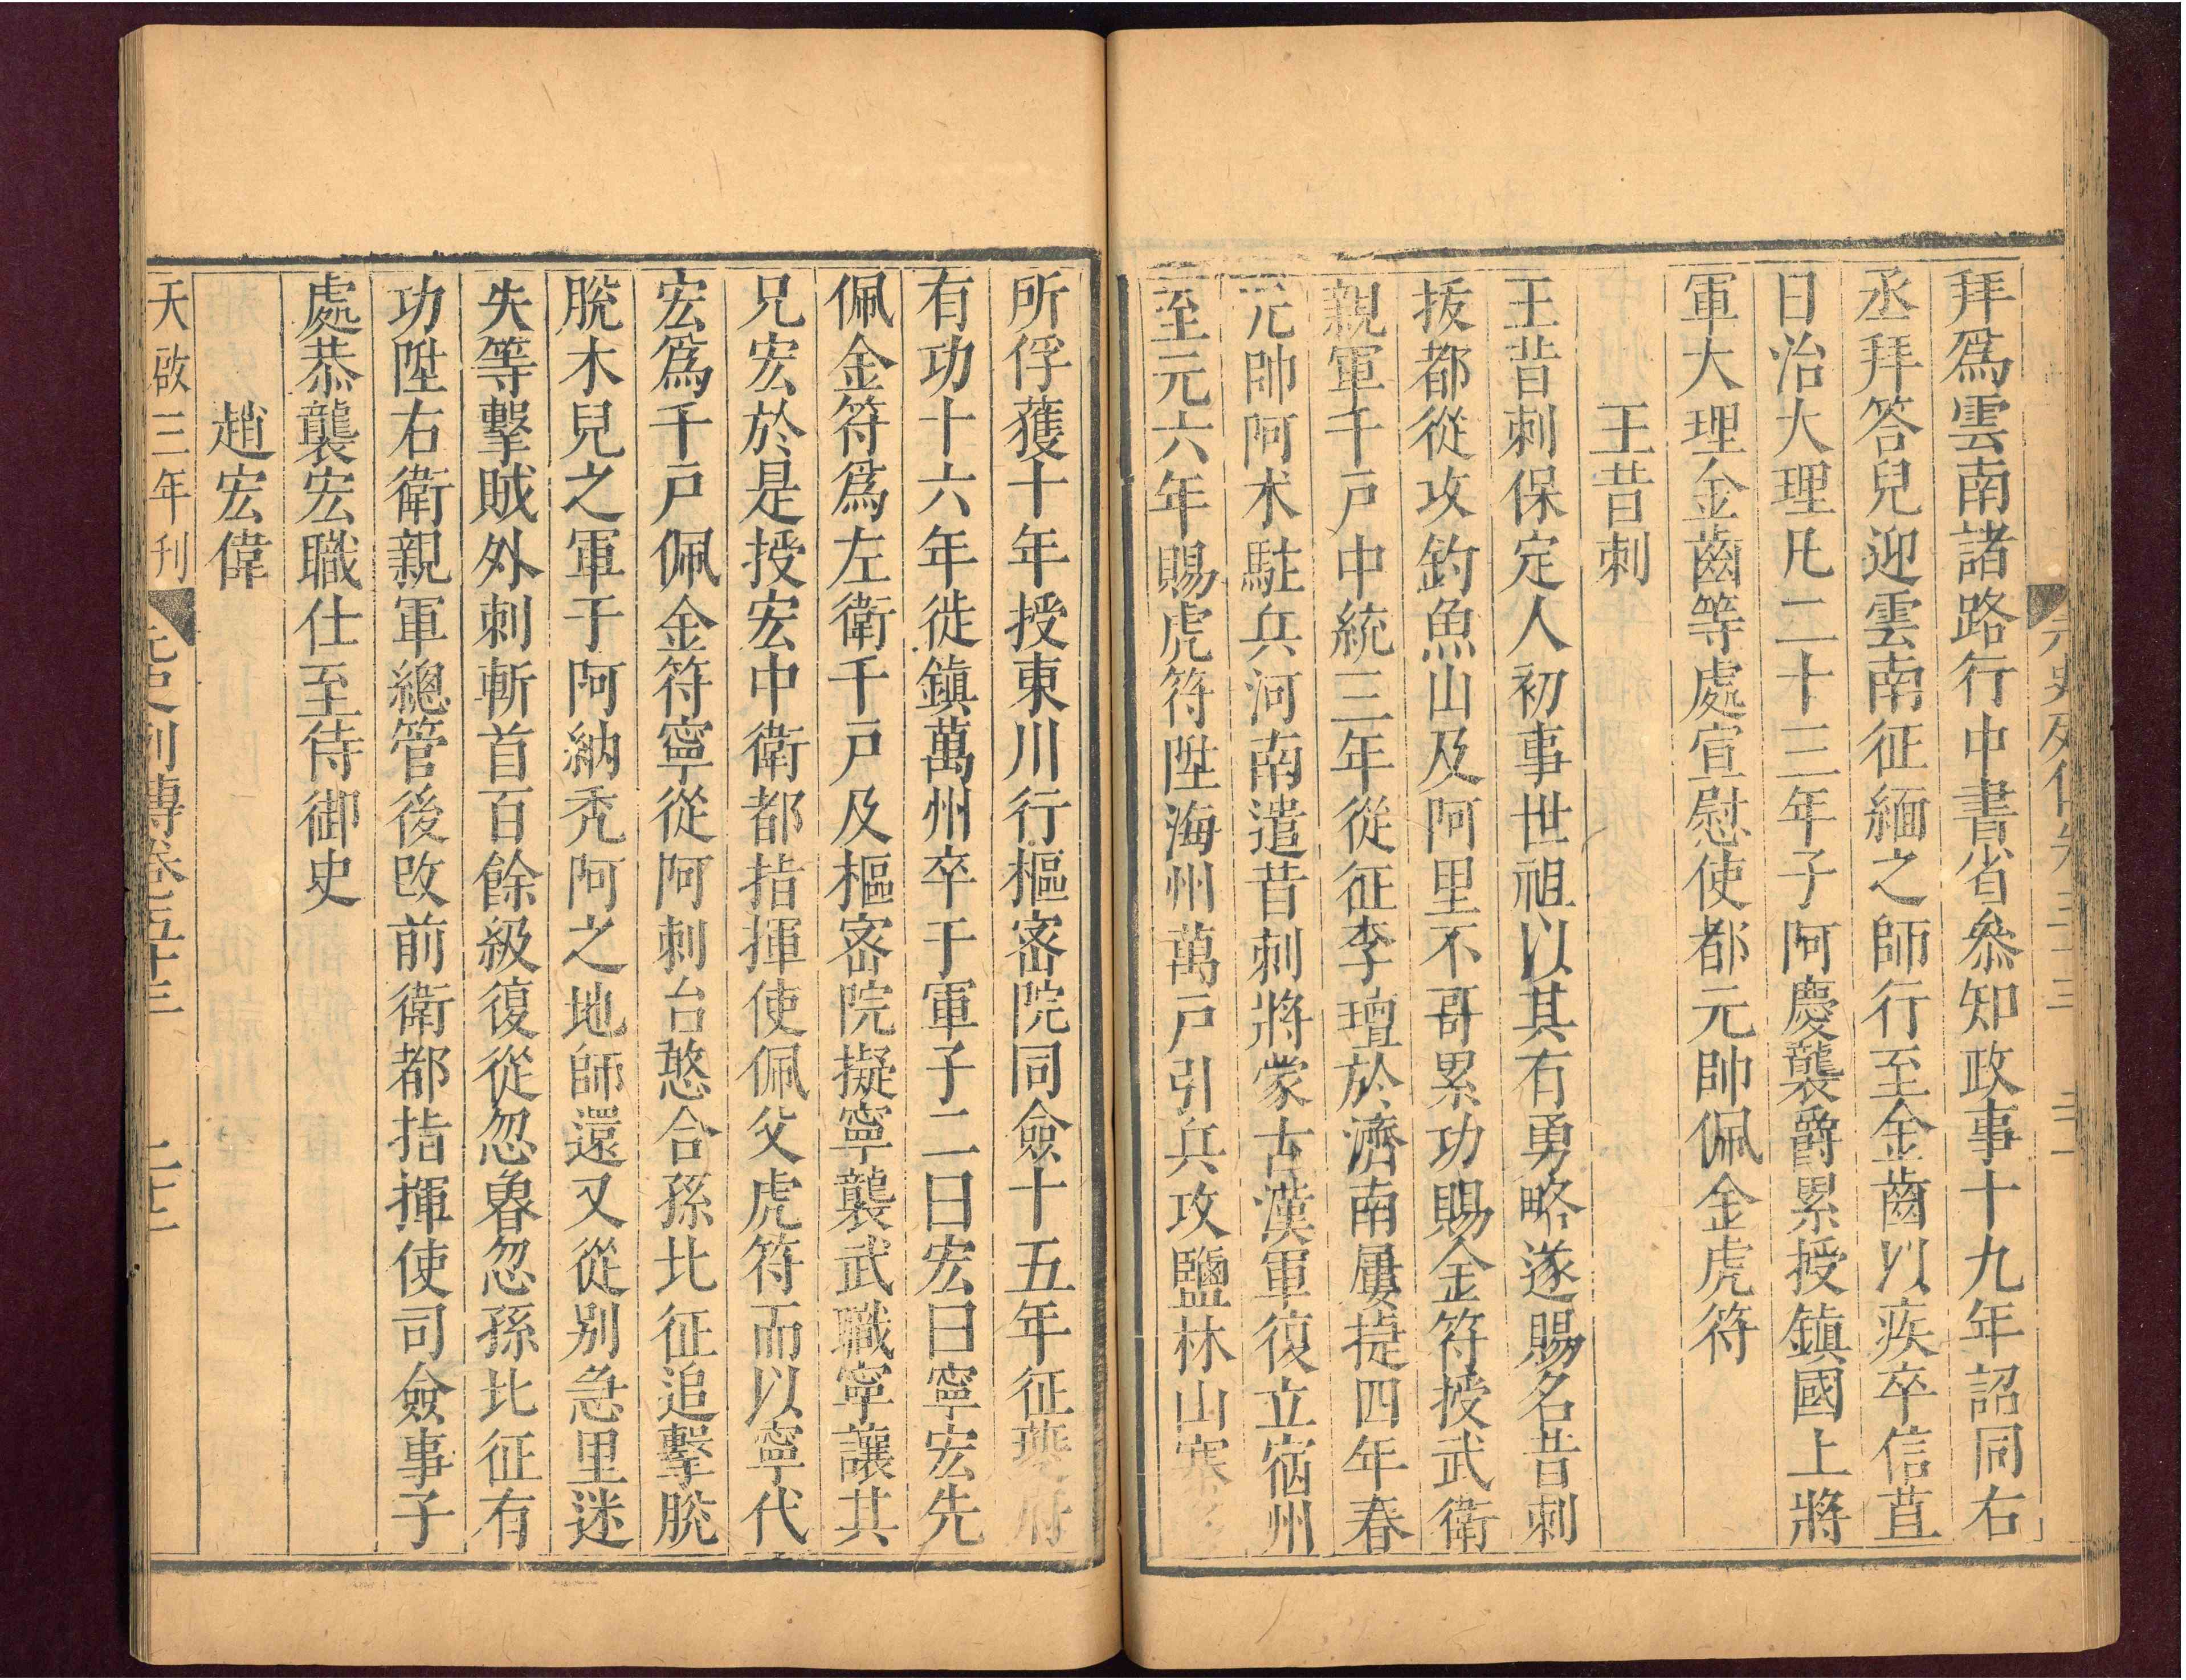 拜爲雲南諸路行中書省叅知政事十九年詔同右
丞拜答兒迎雲南征緬之師行至金齒以疾卒信苴
日治大理凡二十三年子阿慶襲爵累授鎮國上將
軍大理金齒等處宣慰使都元帥佩金虎符
王昔刺
王昔刺保定人初事世祖以其有勇略遂賜名昔刺
拔都從攻釣魚山及阿里不哥累功賜金符授武衛
親軍千戸中統三年從征李璮於濟南屢捷四年春
元帥阿木駐兵河南遣昔刺將蒙古漢軍復立宿州
至元六年賜虎符陞海州萬戸引兵攻鹽林山寨
所俘獲十年授東川行樞密院同僉十五年征
有功十六年徙鎮萬州卒于軍子二曰宏曰寧宏先
佩金符爲左衛千戸及樞密院擬寧襲武職寧讓其
兄宏於是授宏中衛都指揮使佩父虎符而以寧代
宏爲千戸佩金符寧從阿刺台憨合孫北征追擊脫
脫木兒之軍于阿納禿阿之地師還又從别急里迷
失等擊賊外刺斬首百餘級復從忽魯忽孫北征有
功陞右衛親軍總管後改前衛都指揮使司僉事子
處恭襲宏職仕至待御史
趙宏偉
天啟三年刊 元史列傳卷五十三